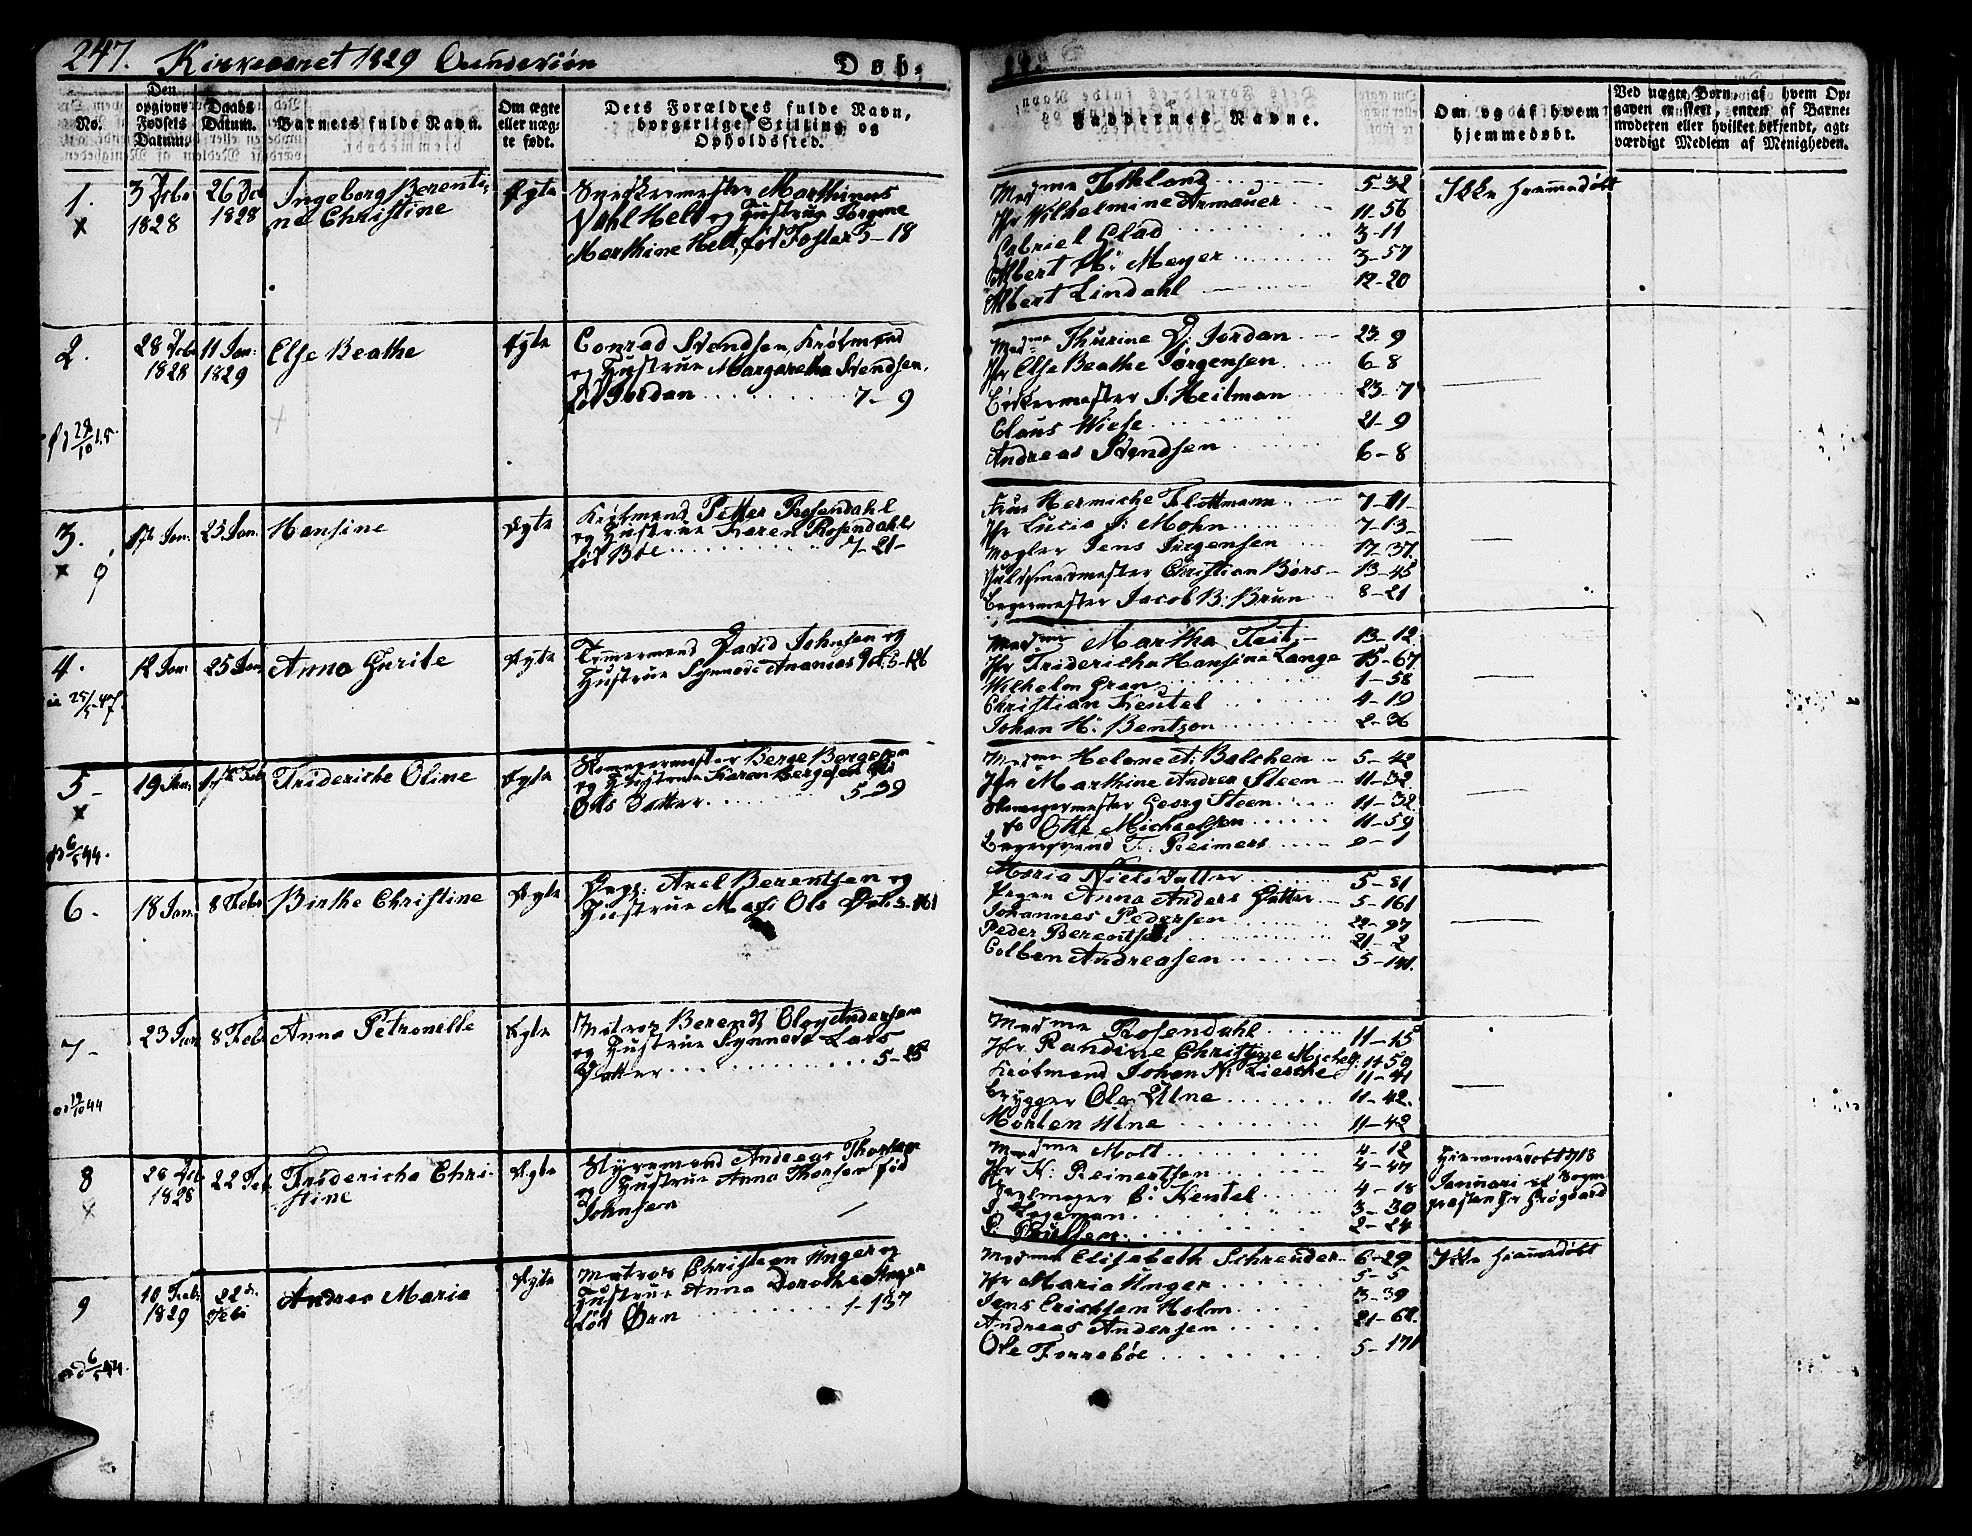 247. Kirkeaaret 1829 Qvindekiøn
Døb-
No.
Den opgivne Fødsels Datum.
Daabs Datum.
Barnets fulde Navn.
Om ægte eller uæg-te født.
Dets Forældres fulde Navn, borgerlige Stilling og Opholdssted.
te.
Faddernes Navne.
Om og af hvem hjemmedøbt.
Ved uægte Børn, af hvem Op-
gaven er skeet, enten af Barne-
moderen eller hvilket bekjendt, agt-
værdigt Medlem af Menigheden.
1.
3 Decbr 1828
26 Dec 1828
Ingeborg Berenti-
ne Christine
Ægte
Snedkermester Marthinus
Dahl Helt og Hustrue Jørgine
Marthine Helt, fød Foster 5-18
Madme Totland 5-32
Jfr Wilhelmine Armauer 11-56
Gabriel Glad 3-11
Albert H: Meyer 3-57
Albert Lindahl 12-20
Ikke hjemmedøbt
2.
28 Decbr 1828
11 Jan: 1829
Else Beathe
Ægte
Conrad Svendsen, Kræmmer
og Hustrue Margaretha Svendsen,
fød Jordan 7-9
Madme Thurine D: Jordan 23-9
Jfr Else Beathe Jørgensen 6-8
J: Heitman 23-7
Claus Wiese 21-9
Andreas Svendsen 6-8
3.
17 Jan.
25 Jan.
Hansine
Ægte
Petter Rosendahl
og Hustrue Karen Rosendahl
fød Bøe 7-21-
Flottmann 7-11-
Jfr Lucia J: Mohn 7-13-
Mægler Jens Jørgensen 17-37
Guldsmedmester Christian Børs 13-45
Bagermester Jacob B: Brun 8-21
4.
12 Jan.
25 Jan
Anna Gurite
Ægte
Tømmermand David Johnsen og
Hustrue Synneve Ananias Dot: 5-126
Madme Martha Feit 13-12
Jfr Fridericha Hansine Lange 15-67
Wilhelm Gran 1-58
Christian Kentel 4-19
Johan H: Bentzon 2-36
5-
19 Jan.
1ste Feb
Frideriche Oline
Ægte
Skomagermester Berge Bergesen
og Hustrue Karen Bergesen
Ols Datter 5-39
Madme Helene A: Balchen 5-42
Jfr Marthine Andrea Steen 11-32
Skomagermester Georg Steen 11-32
do Otto Michaelsen 11-59
F: Reimers 2-1
6.
18 Jan.
8 Febr
Birthe Christine
Ægte
Axel Berentsen og
Hustrue Mari Ols Dot: 5-161
Maria Niels Datter 5-81
Pigen Anna Anders Datter 5-161
Johannes Pedersen 22-97
Peder Berentsen 21-2
Colben Andreasen 5-141.
7-
23 Jan
8 Febr
Anna Petronelle
Ægte
Matros Berendt Oloy Andersen
og Hustrue Synneve Lars
Datter 5-25
Madme Rosendahl 11-15
Jfr Randine Christine Michels: 11-59
Johan N: Liesche 11-41
Brygger Ole Ulne 11-42.
Morten Ulne 11-42
8
26 Dec 1828
22 Feb
Fridericha Chri-
stine
Ægte
Styrmand Andreas Thorsen
og Hustrue Anna Thorsen fød
Johnsen
Madme Molt 4-12
Jfr K: Reinertsen 4-47
B: Kentel 4-18
Hageman 3-30
2-24
Hjemmedøbt
Januari af Sogne-
præsten Hr Grøgaard
9
10 Feb: 1829
22de Feb:
Andrea Maria
Ægte
Matros Christian Unger og
Hustrue Anna Dorothea Unger
fød Ørn 1-137
Madme Elisabeth Schreuder 6-29
Jfr Maria Unger 5-5
Jens Erichsen Holm 3-39
Andreas Andersen 21-62
Ole Forrebøe 5-171
Ikke hjemmedøbt